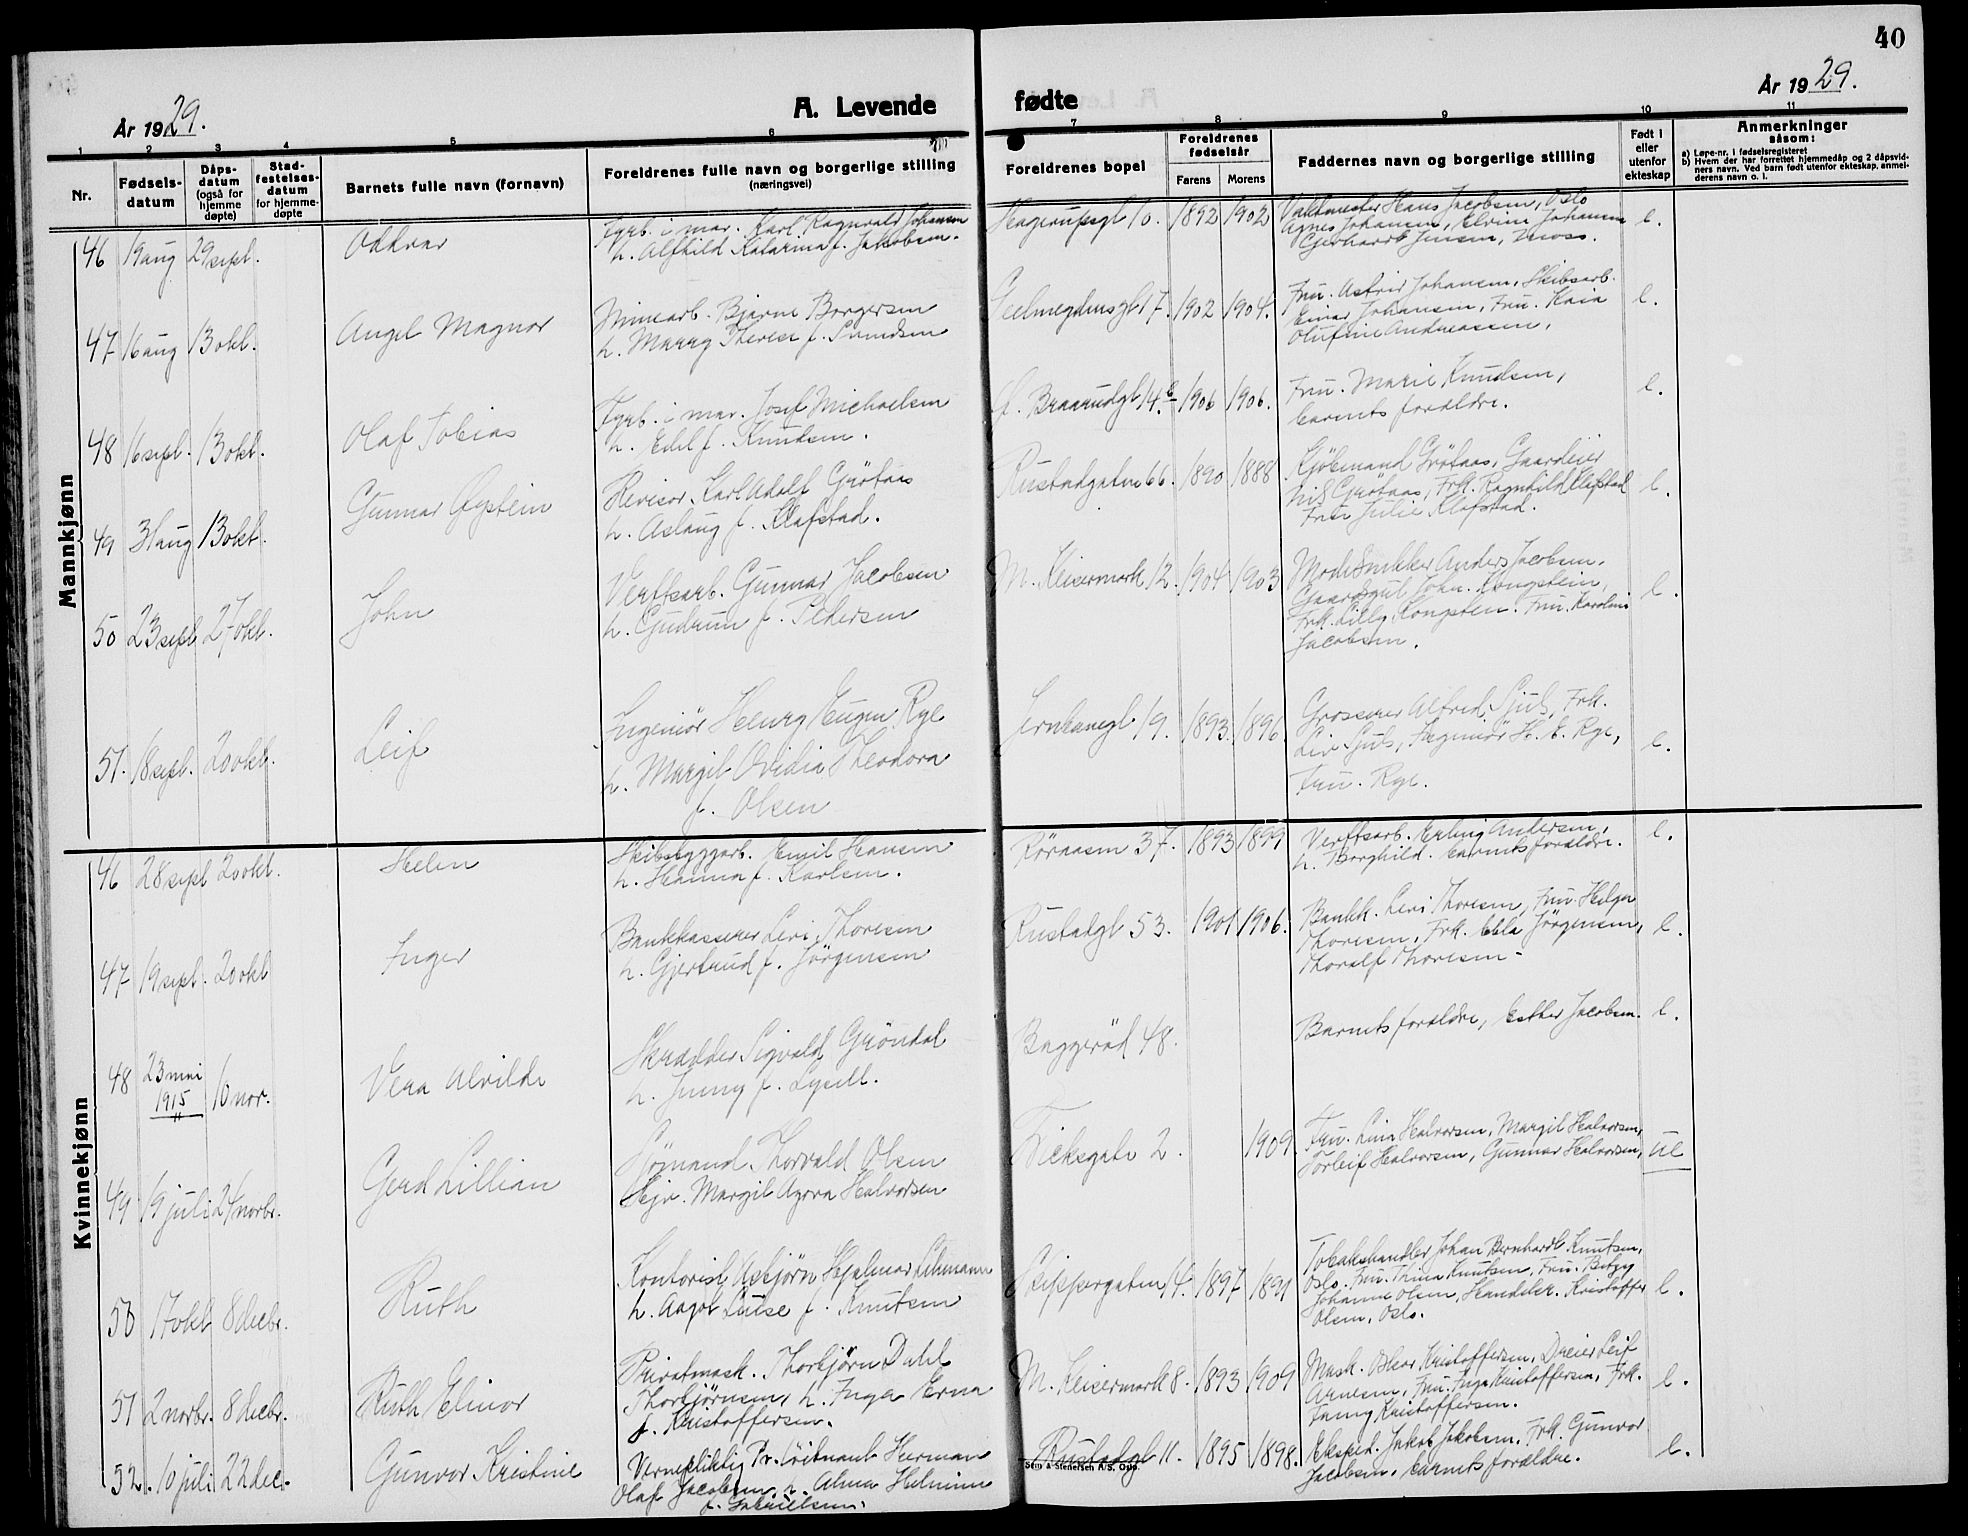 40
År 1929.
A. Levende
fødte
År 1929.
1 2 3 4 5 6 7 8 9 10 11
Nr.
Fødsels-
datum
Dåps-
datum
(også for
hjemme
døpte)
Stad-
festelses-
datum
for hjemme-
døpte
Barnets fulle navn (fornavn)
Foreldrenes fulle navn og borgerlige stilling
(næringsvei)
Foreldrenes bopel
Foreldrenes
fødselsår
Farens
Morens
Faddernes navn og borgerlige stilling
Født i
eller
utenfor
ekteskap
Anmerkninger
såsom:
a) Løpe-nr. i fødselsregisteret
b) Hvem der har forrettet hjemmedåp og 2 dåpsvid-
ners navn. Ved barn født utenfor ekteskap, anmel-
derens navn o. l.
Mannkjønn
46 19 aug 29 sept. Oddvar
Fyrb. i mar. Karl Ragnvald Johansen
h. Alfhild Katarina f. Jakobsen.
Hagerupsgt 10. 1892 1902
Vaktmester Hans Jacobsen, Oslo
Agnes Johansen, Elvine Johansen
Gerhardt Jensen, Moss.
e.
47 16 aug 13 okt. Angel Magnor
Minearb. Bjarne Borgersen
h. Marry Therese f. Svendsen
17. 1902 1904.
Fru. Astrid Johansen, Skibsarb.
Einar Johansen, Fru. Kaia
Olufine Andreassen,
e.
48 16 sept. 13 okt. Olaf Tobias
Fyrb. i mar. Josef Michaelsen
h. Edel f. Knudsen.
Braarudgt 14 b 1906 1906.
Fru. Marie Knudsen,
barnets forældre.
e.
49 31 aug 13 okt. Gunnar Øystein
Revisor Karl Adolf Grötaas
h. Aslaug f. Klafstad.
Rustadgaten 66. 1890 1888
Kjöbmand Grötaas, Gaardeier
Nils Grötaas, Frk. Ragnhild Klafstad
Fru Julie Klafstad.
e.
50 23 sept 27 okt. John
Verftsarb. Gunnar Jacobsen
h. Gudrun f. Pedersen
M. Keisermark 12. 1904 1903
Modelsnekker Anders Jacobsen.
Gaardsgut John. Kongstein,
Frk. Lilly Kongsten. Fru. Karoline
Jacobsen.
e.
51. 18 sept. 20 okt. Leif
Ingeniör Henry Eugen Rye
h. Margit Ovidia Theodora
f. Olsen
Jernbanegt 19. 1893. 1896.
Grosserer Alfred Sjuls, Frk.
Liv Sjuls, Ingeniör H. E. Rye,
Fru. Rye.
e.
Kvinnekjønn
46 28 sept 20 okt. Helen
Skibsbyggarb. Emil Hansen
h. Hanna f. Karlsen.
Röraasen 37. 1893 1899
Verftsarb. Erling Andersen,
h. Borghild. barnets forældre.
e.
47 19 sept. 20 okt Inger
Bankkasserer Levi Thoresen
h. Gjertrud f. Jörgensen
Rustadgt 53. 1901 1906.
Bankk. Levi Thoresen, Fru. Helga
Thoresen, Frk. Ella Jörgensen,
Thoralf Thoresen -
e.
48 23 mai
1915
10 nov. Vera Alvilde
Skrædder Sigvald Gröndal
h. Jenny f. Lysell.
Baggeröd 48.
Barnets forældre, Esther Jacobsen.
e.
49 19 juli 24 novbr. Gerd Lillian
Sjömand Thorvald Olsen
Hejv. Margit Agova Halvorsen
Dicksgate 2. 1909.
Fru. Lina Halvorsen, Margit Halvorsen,
Torleif Halvorsen, Gunnar Halvorsen,
ue
50 17 okt 8 decbr. Ruth
Kontorist Asbjörn Hjalmar Lehmann
h. Aagot Luise f. Knutsen
Skippergaten 14. 1897 1899
Tobakshandler Johan Bernhardt Knutsen,
Oslo. Fru. Thina Knutsen, Fru. Betzy
Johanne Olsen, Handelsr. Kristoffer
Olsen, Oslo.
e.
51 2 novbr. 8 decbr. Ruth Elinor
Privatmask. Thorbjörn Dahl
Thorbjörnsen, h. Inga Erna
f. Kristoffersen.
M. Keisermark 8. 1893 1909
Mask. Oskar Kristoffersen, Dreier Leif
Arnesen, Fru. Inga Kristoffersen, Frk.
Fanny Kristoffersen.
e.
52. 10 juli 22 dec. Gunvor Kristine
Vernepliktig Pr. löitnant Herman
Olaf Jacobsen, h. Alma Helmine
f. Gabrielsen.
Rustadgt 11. 1895 1898.
Eksped. Jakob Jakobsen. Frk. Gunvor
Jacobsen, barnets forældre.
e.
Sem & Stenersen A/S, Oslo.